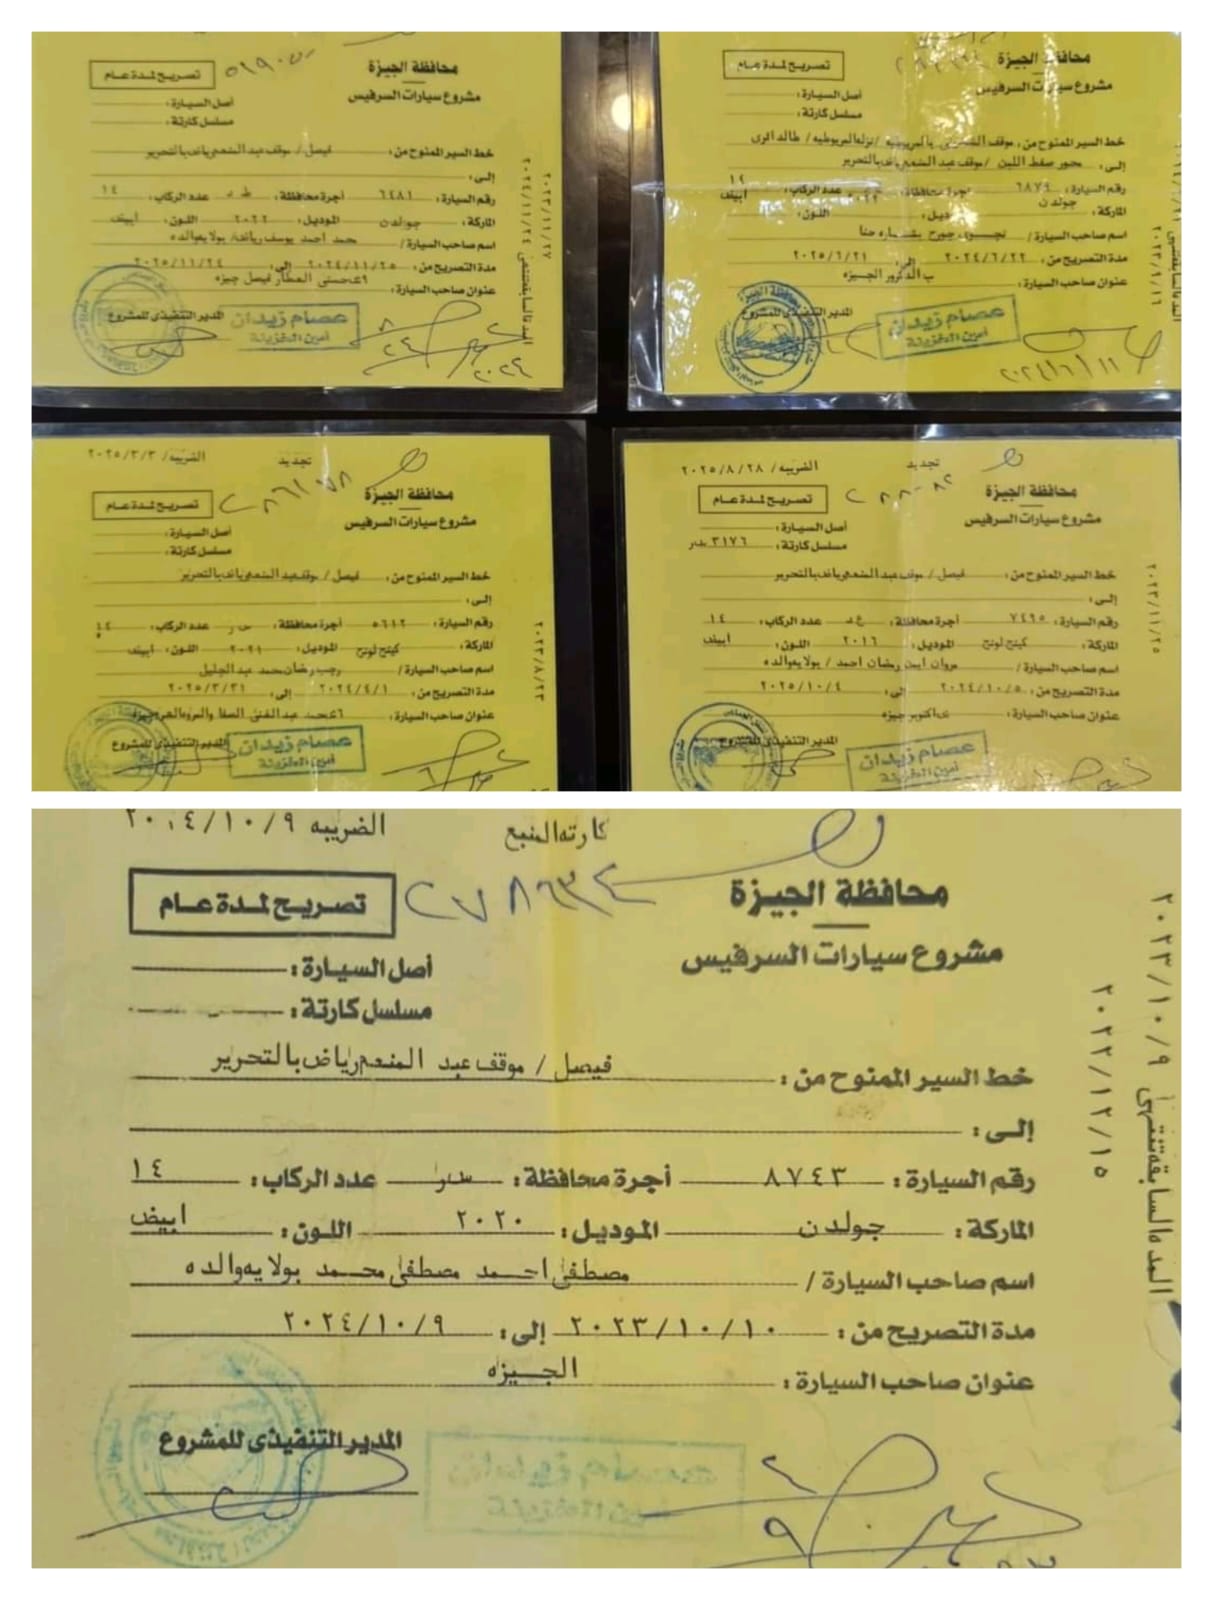 محافظة الجيزة
تصريح لمدة عام
مشروع سيارات السرفيس
أصل السيارة :
مسلسل كارتة :
خط السير الممنوح من : فيصل / موقف عبد المنعم رياض بالتحرير
إلى :
رقم السيارة : ٦٤٨١ أجرة محافظة : عدد الركاب : ١٤
الماركة : جولدن الموديل : ٢٠٢٢ اللون : ابيض
اسم صاحب السيارة / محمد احمد يوسف رياض / بولايه والده
مدة التصريح من : ٢٠٢٤/١١/٢٥ إلى : ٢٠٢٥/١١/٢٤
عنوان صاحب السيارة : فيصل جيزه
المدير التنفيذى للمشروع
عصام زيدان
أمين الخزينة
٢٠٢٣/١/٢٧
محافظة الجيزة
تصريح لمدة عام
مشروع سيارات السرفيس
أصل السيارة :
مسلسل كارتة :
خط السير الممنوح من : موقف
إلى : محور صفط اللبن / موقف عبد المنعم رياض بالتحرير
رقم السيارة : ٦٨٧٩ أجرة محافظة : عدد الركاب : ١٤
الماركة : جولدن الموديل : اللون : ابيض
اسم صاحب السيارة /
مدة التصريح من : ٢٠٢٤/٦/٢٢ إلى : ٢٠٢٥/٦/٢١
عنوان صاحب السيارة : الجيزه
المدير التنفيذى للمشروع
عصام زيدان
أمين الخزينة
تجديد الضريبه / ٢٠٢٥/٣/٣
محافظة الجيزة
تصريح لمدة عام
مشروع سيارات السرفيس
أصل السيارة :
مسلسل كارتة :
خط السير الممنوح من : فيصل / موقف عبد المنعم رياض بالتحرير
إلى :
رقم السيارة : ٥٦١٢ أجرة محافظة : عدد الركاب : ١٤
الماركة : كينج لونج الموديل : ٢٠٢١ اللون : ابيض
اسم صاحب السيارة / رجب رمضان محمد عبد الجليل
مدة التصريح من : ٢٠٢٤/٤/١ إلى : ٢٠٢٥/٣/٣١
عنوان صاحب السيارة :
المدير التنفيذى للمشروع
عصام زيدان
أمين الخزينة
٢٠٢٣/٨/٢٣
تجديد الضريبه / ٢٠٢٥/٨/٢٨
محافظة الجيزة
تصريح لمدة عام
مشروع سيارات السرفيس
أصل السيارة :
مسلسل كارتة : ٣١٧٦
خط السير الممنوح من : فيصل / موقف عبد المنعم رياض بالتحرير
إلى :
رقم السيارة : ٧٤٦٥ أجرة محافظة : عدد الركاب : ١٤
الماركة : كينج لونج الموديل : ٢٠١٦ اللون : ابيض
اسم صاحب السيارة / مروان ايمن رمضان احمد / بولايه والده
مدة التصريح من : ٢٠٢٤/١٠/٥ إلى : ٢٠٢٥/١٠/٤
عنوان صاحب السيارة : اكتوبر جيزه
المدير التنفيذى للمشروع
عصام زيدان
أمين الخزينة
٢٠٢٣/١/٢٥
كارته المنبع الضريبه ٢٠٢٤/١٠/٩
محافظة الجيزة
تصريح لمدة عام
مشروع سيارات السرفيس
أصل السيارة :
مسلسل كارتة :
خط السير الممنوح من : فيصل / موقف عبد المنعم رياض بالتحرير
إلى :
رقم السيارة : ٨٧٤٣ أجرة محافظة : عدد الركاب : ١٤
الماركة : جولدن الموديل : ٢٠٢٠ اللون : ابيض
اسم صاحب السيارة / مصطفى احمد مصطفى محمد بولايه والده
مدة التصريح من : ٢٠٢٣/١٠/١٠ إلى : ٢٠٢٤/١٠/٩
عنوان صاحب السيارة : الجيزه
المدير التنفيذى للمشروع
المده السابقه تنتهى ٢٠٢٣/١٠/٩
٢٠٢٢/١٢/١٥